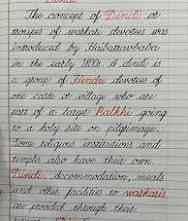 The concept of Dindi or
troupes of warkari devotees was
introduced by Haibatravbaba
in the early 1800s. A dindi is
a group of Hindu devotees of
one caste or village who are
part of a larger Palkhi going
to a holy site on pilgrimage.
Some religious institutions and
temples also have their own
Dindi. accommodation, meals
and other facilities to warkaris
are provided through their